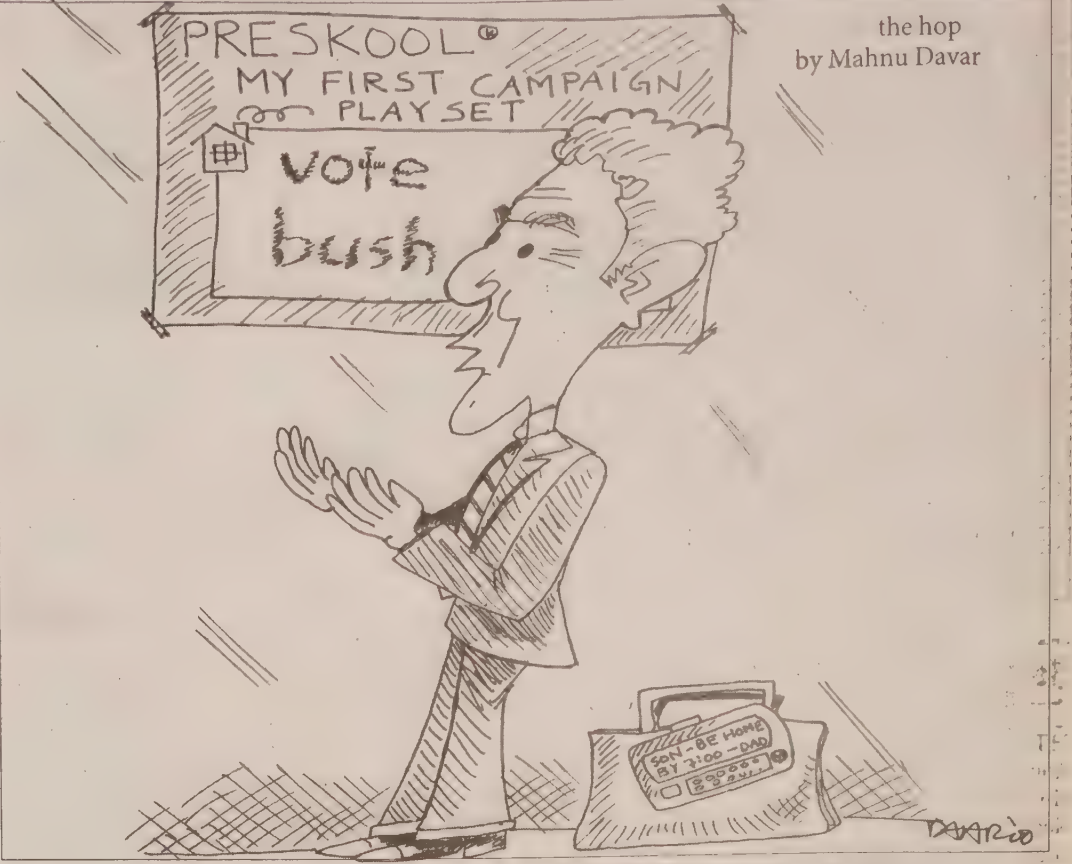 the hop
by Mahnu Davar
PRESKOOL®
MY FIRST CAMPAIGN
PLAYSET
vote
bush
SON-BE HOME
BY 7:00-DAD
DAVAR '00